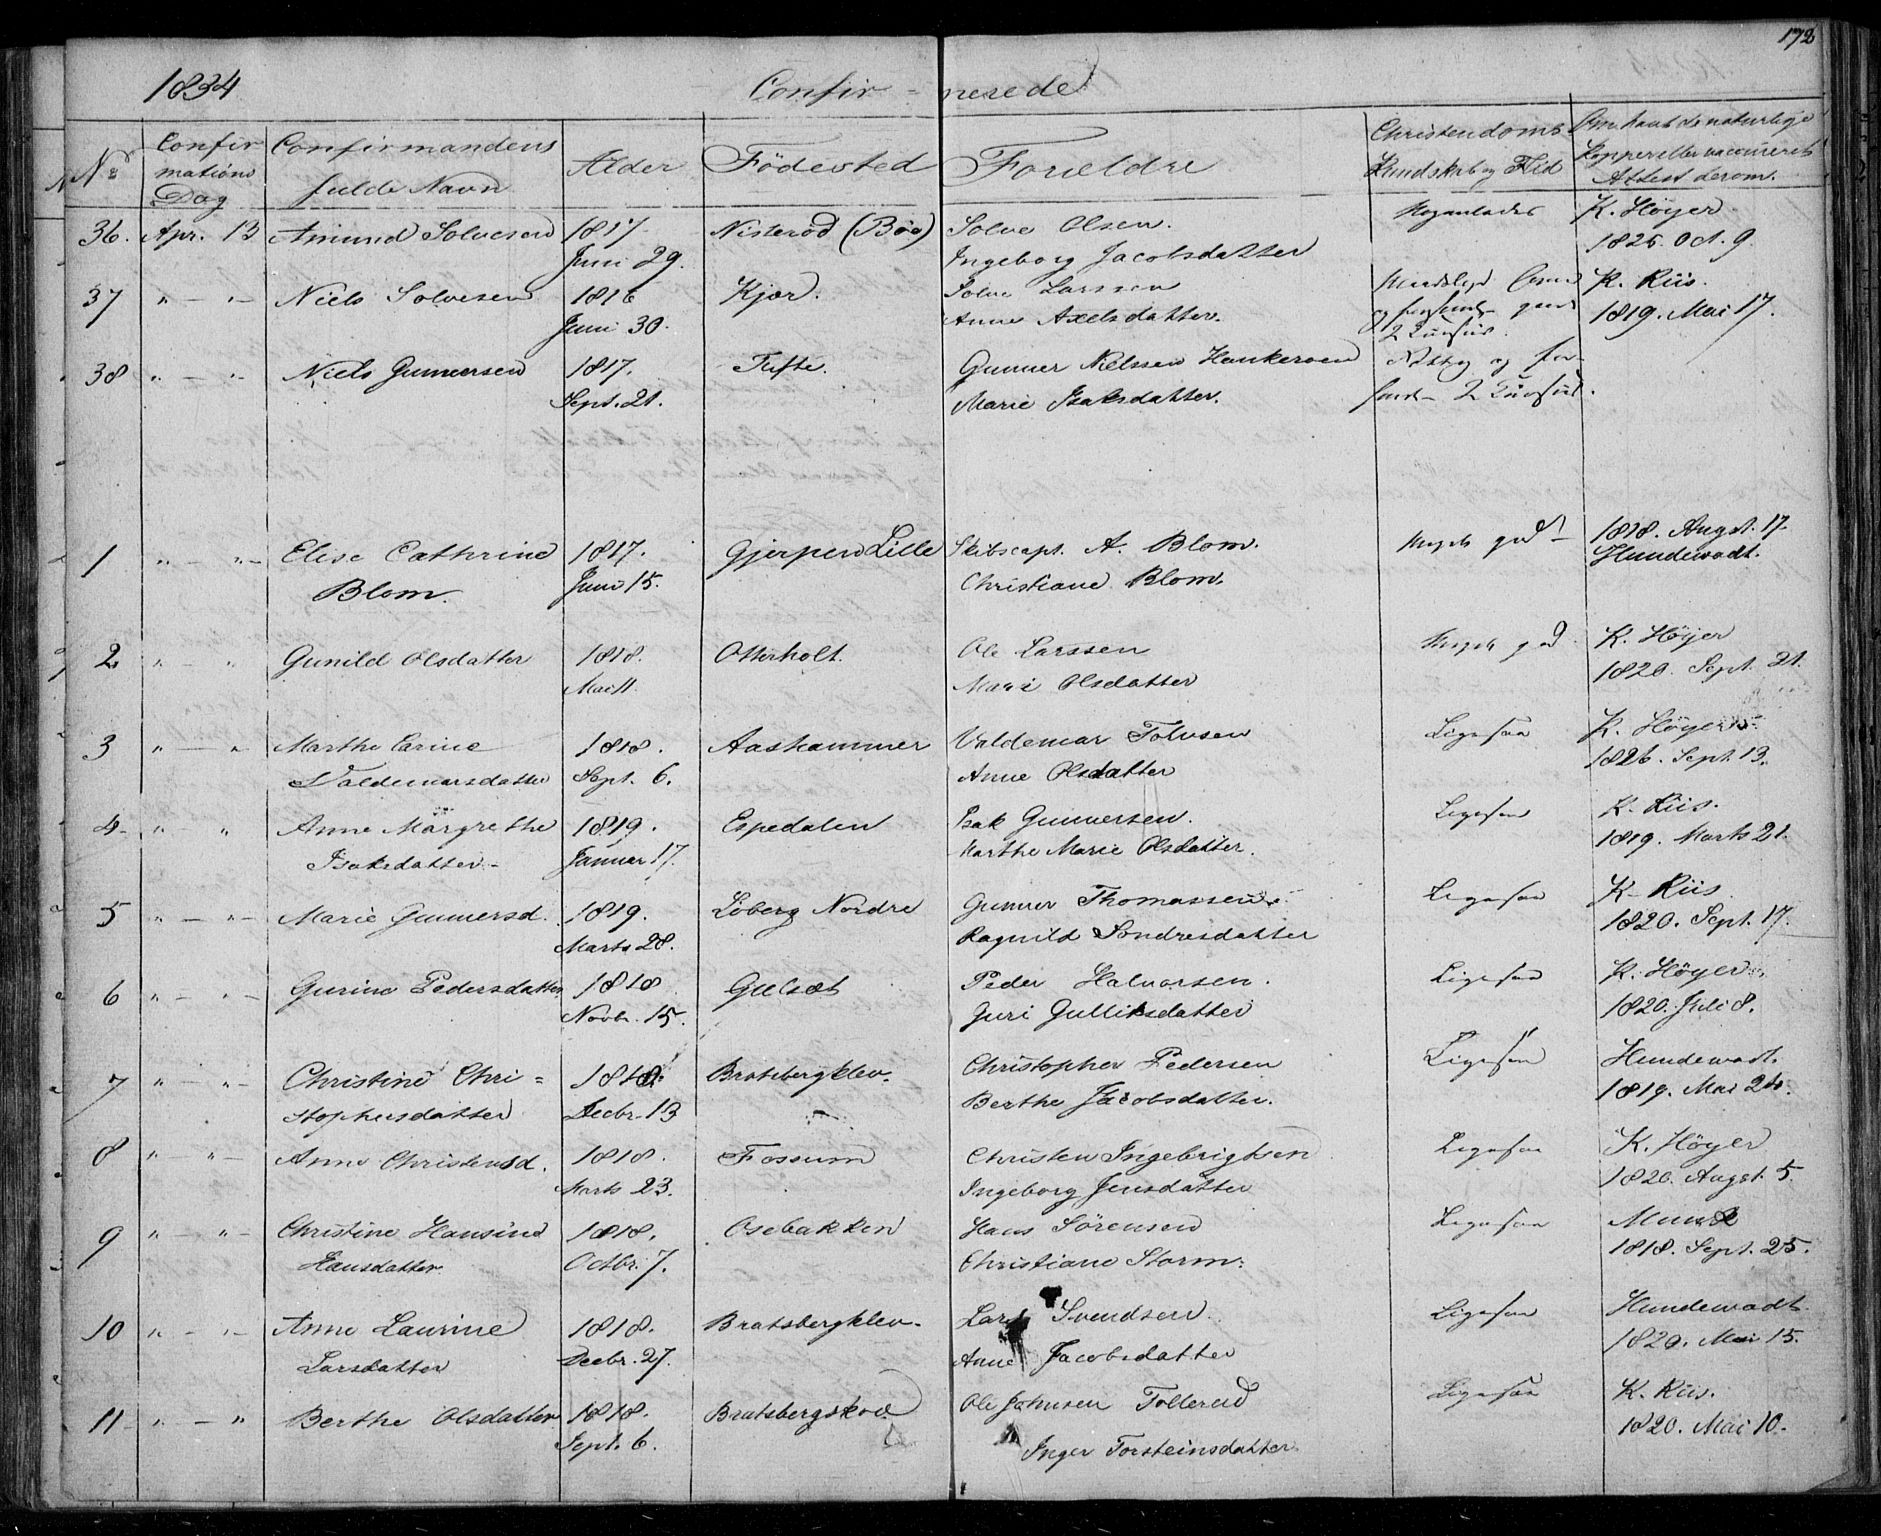 172
1834 Confir - merede
No Confir Confirmandens Alder Födested Forældre Christendoms Om havt de naturlige
mations fulde Navn Kundskab og Flid Kopper eller vaccineret
Dag Attest derom.
36. Apr. 13 Amund Solvesen 1817 Nisterod (Böe) Solve Olsen. K. Höyer
Juni 29. Ingeborg Jacobsdatter 1825. Oct. 9.
37 " — " — Niels Solvesen 1816 Kjær. Solve Larssen K. Riis.
Juni 30. Anne Axelsdatter. 1819. Mai 17.
2 Cursus.
38 " — " Niels Gunnersen 1817. Tufte. Gunner Nielssen Hankeroen
Sept. 21. Marie Isaksdatter. 2 Cursus.
1 " — " — Elise Cathrine 1817. Gjerpen Lille Skibscapt. A. Blom. Meget god — 1818. Augst. 17.
Blom. Juni 15. Christiane Blom. Hundewadt.
2 " — " Gunild Olsdatter 1818. Otterholt. Ole Larssen Meget god K. Höyer
Mai 11. Mari Olsdatter 1820. Sept. 21.
3 " — " Marthe Carine 1818. Aashammer Valdemar Tolvsen Ligesaa K. Höyer
Valdemarsdatter Sept. 6. Anne Olsdatter 1826. Sept. 13.
4 " — " Anne Margrethe 1819. Espedalen Isak Gunnersen. Ligesaa K. Riis.
Isaksdatter — Januar 17. Marthe Marie Olsdatter. 1819. Marts 21.
5 " — " — Marie Gunnersd. 1819. Löberg Nordre Gunner Thomassen Ligesaa K. Riis
Marts 28. Ragnild Sondresdatter 1820. Sept. 17.
6 " — " — Gurine Pedersdatter 1818 Gulset Peder Halvorsen. Ligesaa K. Höyer
Novbr. 15. Guri Gulliksdatter 1820. Juli 8.
7 " — " — Christine Chri = 1818. Bratsbergklev. Christopher Pedersen Ligesaa Hundewadt.
stophersdatter Decbr. 13 Berthe Jacobsdatter. 1819. Mai 24.
8 " — " — Anne Christensd. 1818. Fossum Christen Ingebrigtsen Ligesaa K. Höyer
Marts 23. Ingeborg Jensdatter 1820. Augst. 5.
9 " — " — Christine Hansine 1818. Osebakken Hans Sörensen Ligesaa Munk
Hansdatter. Octbr. 7. Christiane Storm. 1818. Sept. 25.
10 " — " — Anne Laurine 1818. Bratsbergklev. Lars Svendsen. Ligesaa Hundewadt.
Larsdatter Decbr. 27. Anne Jacobsdatter 1820. Mai 15.
11 " — " Berthe Olsdatter 1818. Bratsbergskov Ole Johnsen Tollerud Ligesaa K. Riis.
Sept. 6. Inger Torsteinsdatter 1820. Mai 10.